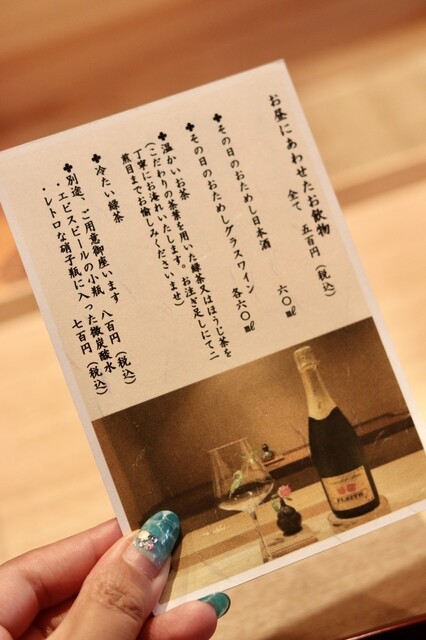 お昼にあわせたお飲物
全て 五百円(税込)
✤その日のおためし日本酒 六〇㎖
✤その日のおためしグラスワイン 各六〇㎖
✤温かいお茶
(こだわりの茶葉を用いた緑茶又はほうじ茶を
丁寧にお淹れいたします。お注ぎ足しにて二
煎目までお愉しみくださいませ)
✤冷たい緑茶
✤別途、ご用意御座います
・ヱビスビールの小瓶 八百円(税込)
・レトロな硝子瓶に入った微炭酸水
七百円(税込)